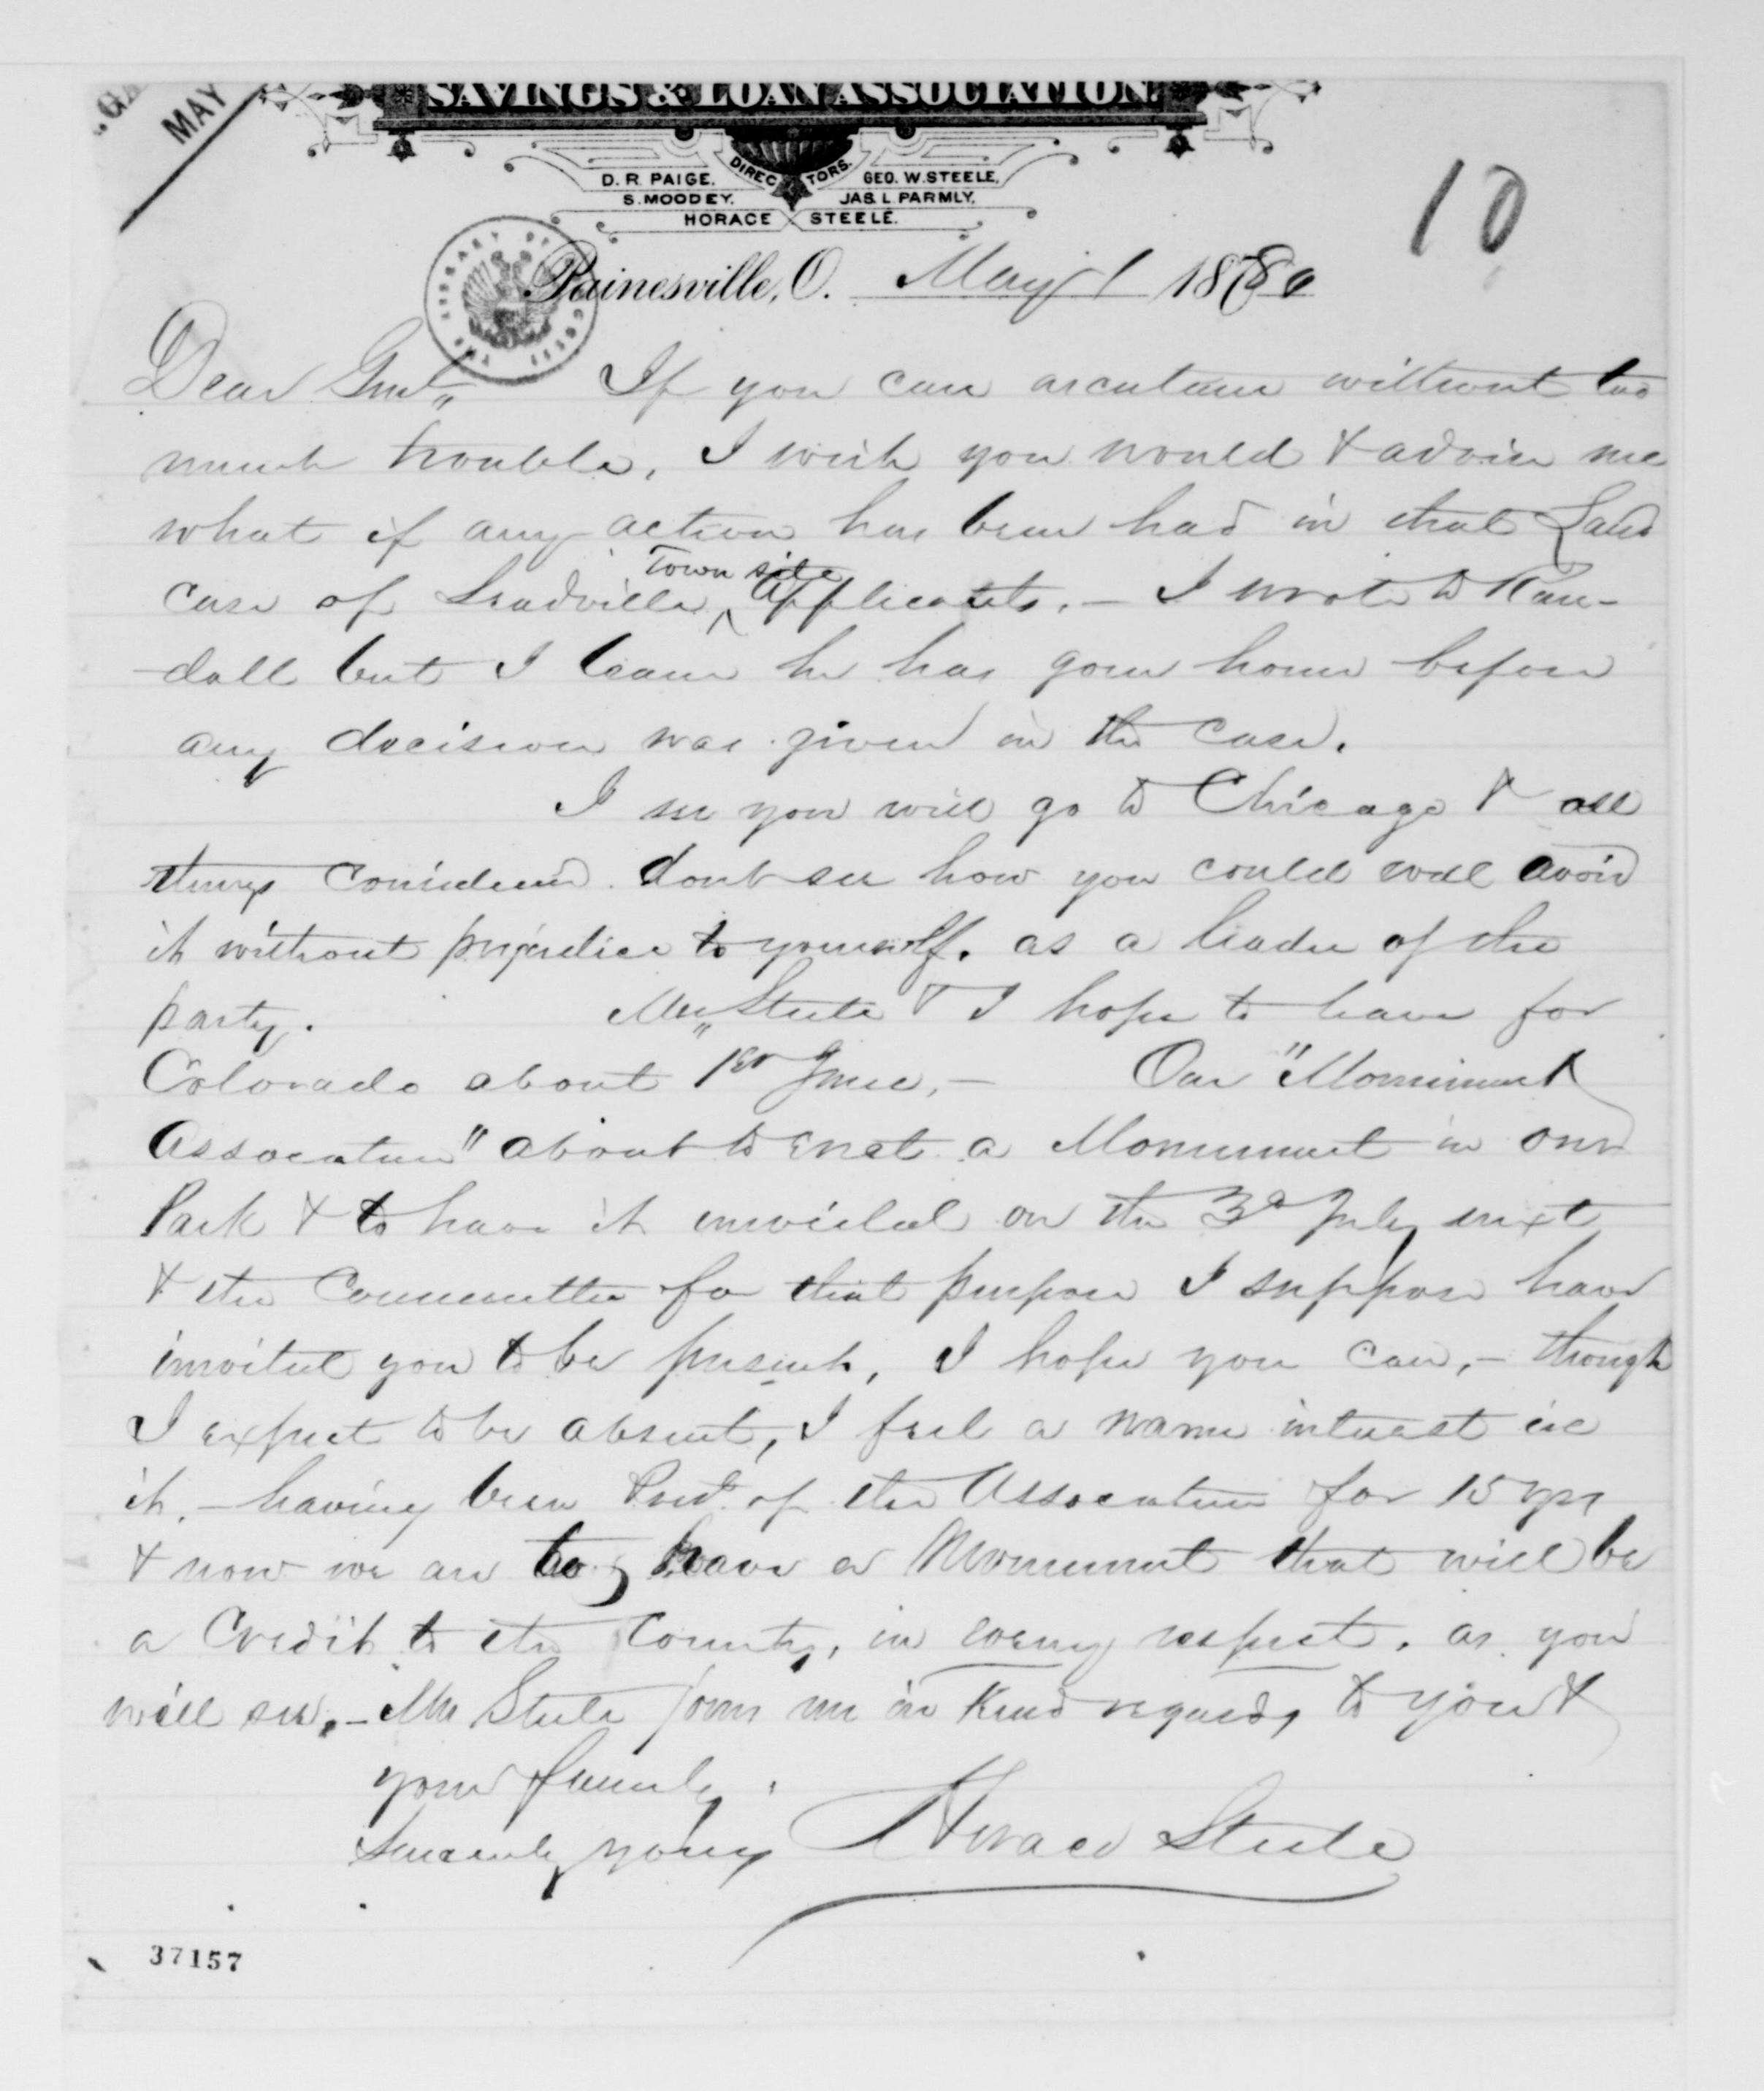 MAY
SAVINGS & LOAN ASSOCIATION.
DIRECTORS.
D. R. PAIGE. GEO. W. STEELE,
S. MOODEY. JAS. L. PARMLY,
HORACE STEELE.
10
Painesville, O. May 1 1880
Dear Genl, If you can ascertain without too
much trouble, I wish you would & advise me
what if any action has been had in that Land
Town site
case of Leadville, Applicants. — I wrote to Ran-
-dall but I learn he has gone home before
any decision was given in the case.
I see you will go to Chicago & all
things considered dont see how you could well avoid
it without prejudice to yourself. as a leader of the
party. Mrs Steele & I hope to leave for
Colorado about 1st June, — Our "Monument
Association" about to erect a Monument in our
Park & to have it unveiled on the 3d July next
& the Committee for that purpose I suppose have
invited you to be present, I hope you can, — though
I expect to be absent, I feel a warm interest in
it, — having been Prest. of the Association for 15 yrs
& now we are to have a Monument that will be
a Credit to the County, in every respect, as you
will see. — Mrs Steele joins me in Kind regards to you &
your family.
Sincerely yours Horace Steele
37157